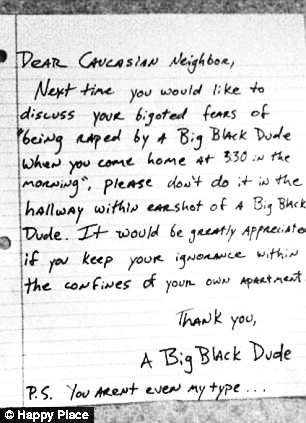 Dear Caucasian Neighbor,
Next time you would like to
discuss your bigoted fears of
"being raped by A Big Black Dude
when you come home at 330 in the
morning", please don't do it in the
hallway within earshot of A Big Black
Dude. It would be greatly appreciated
if you keep your ignorance within
the confines of your own apartment.
Thank you,
A Big Black Dude
P.S. You arent even my type...
© Happy Place